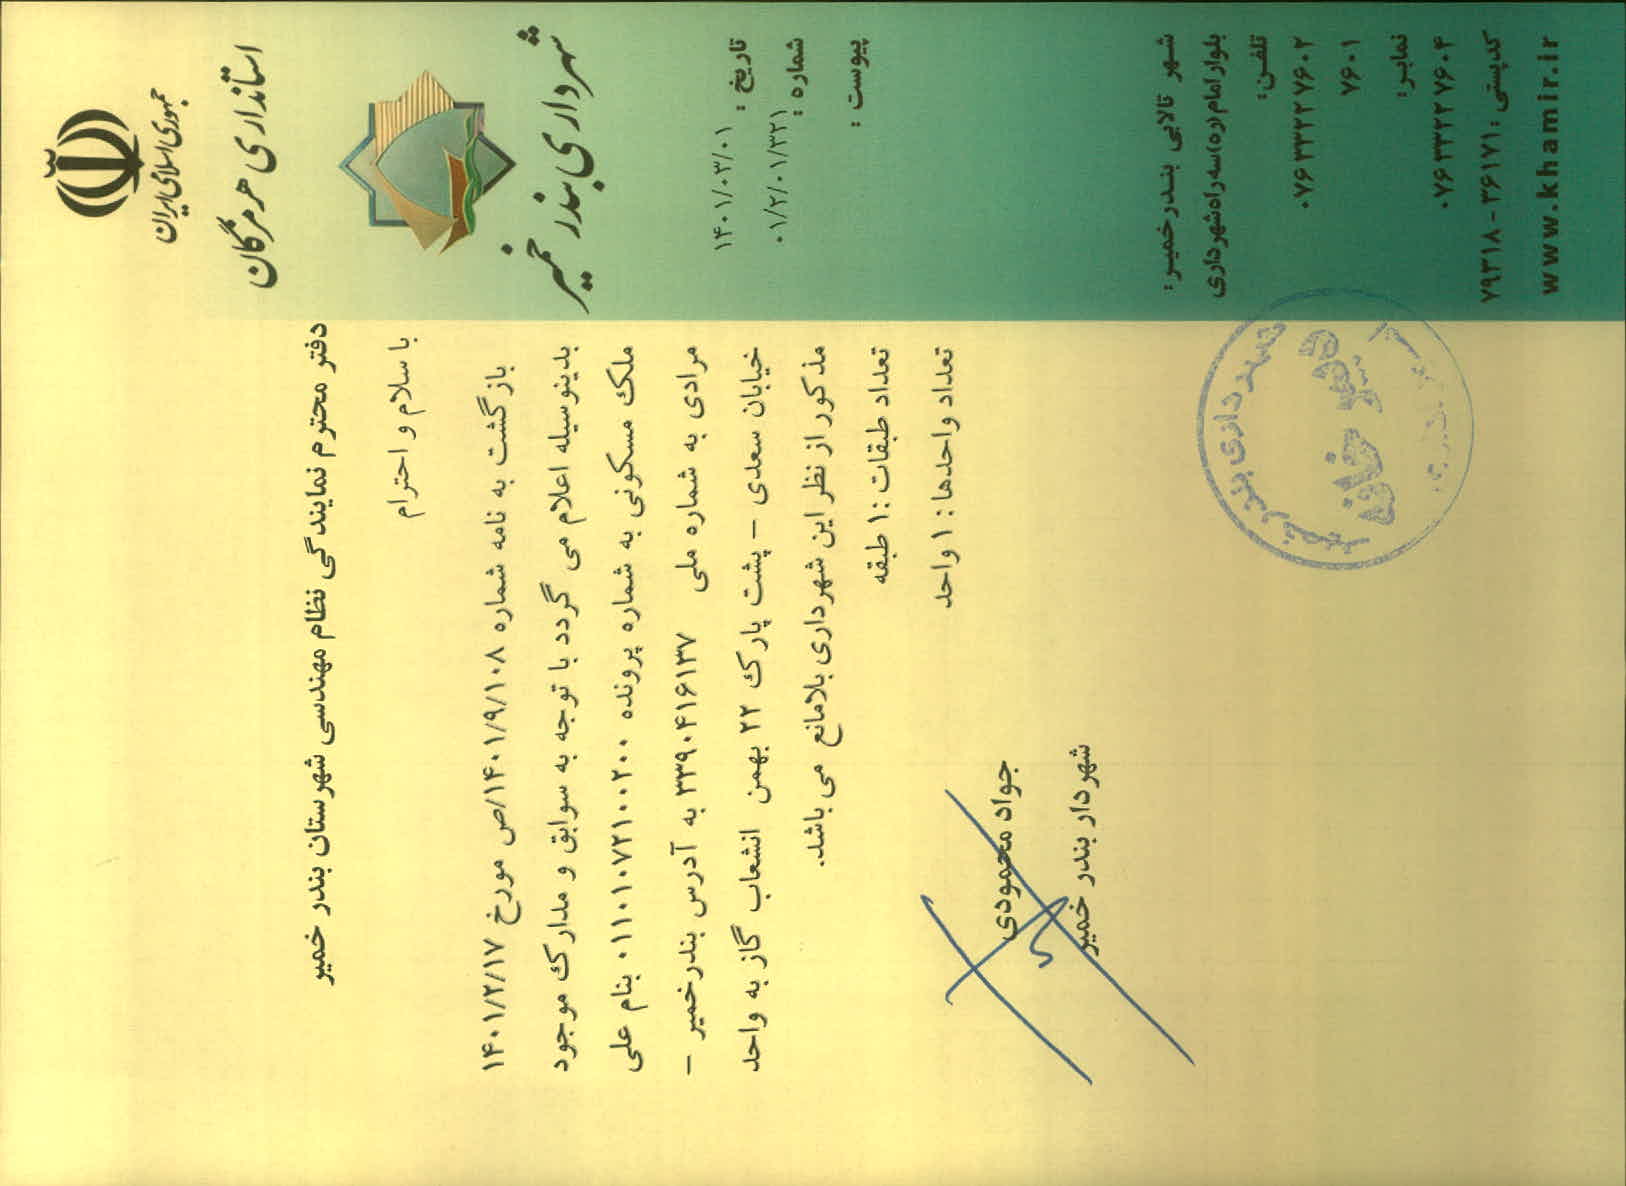 جمهوری اسلامی ایران
استانداری هرمزگان
شهرداری بندر خمیر
تاریخ :
۱۴۰۱/۰۳/۰۱
شماره :
۰۱/۲/۰۱/۳۲۱
پیوست :
شهر تالابی بندرخمیر:
بلوار امام(ره)سه راه شهرداری
تلفن:
۰۷۶۳۳۲۲۷۶۰۲
۷۶۰۱
نمابر:
۰۷۶۳۳۲۲۷۶۰۴
کدپستی: ۳۶۱۷۱ - ۷۹۳۱۸
www.khamir.ir
دفتر محترم نمایندگی نظام مهندسی شهرستان بندر خمیر
با سلام و احترام
بازگشت به نامه شماره ۱۴۰۱/۹/۱۰۸/ص مورخ ۱۴۰۱/۲/۱۷
بدینوسیله اعلام می گردد با توجه به سوابق و مدارک موجود
ملک مسکونی به شماره پرونده ۰۱۱۰۱۰۷۲۱۰۰۲۰۰ بنام علی
مرادی به شماره ملی ۳۳۹۰۴۱۶۱۳۷ به آدرس بندرخمیر –
خیابان سعدی – پشت پارک ۲۲ بهمن انشعاب گاز به واحد
مذکور از نظر این شهرداری بلامانع می باشد.
تعداد طبقات :۱ طبقه
تعداد واحدها : ۱ واحد
جواد محمودی
شهردار بندر خمیر
شهرداری بندر خمیر
دبیرخانه